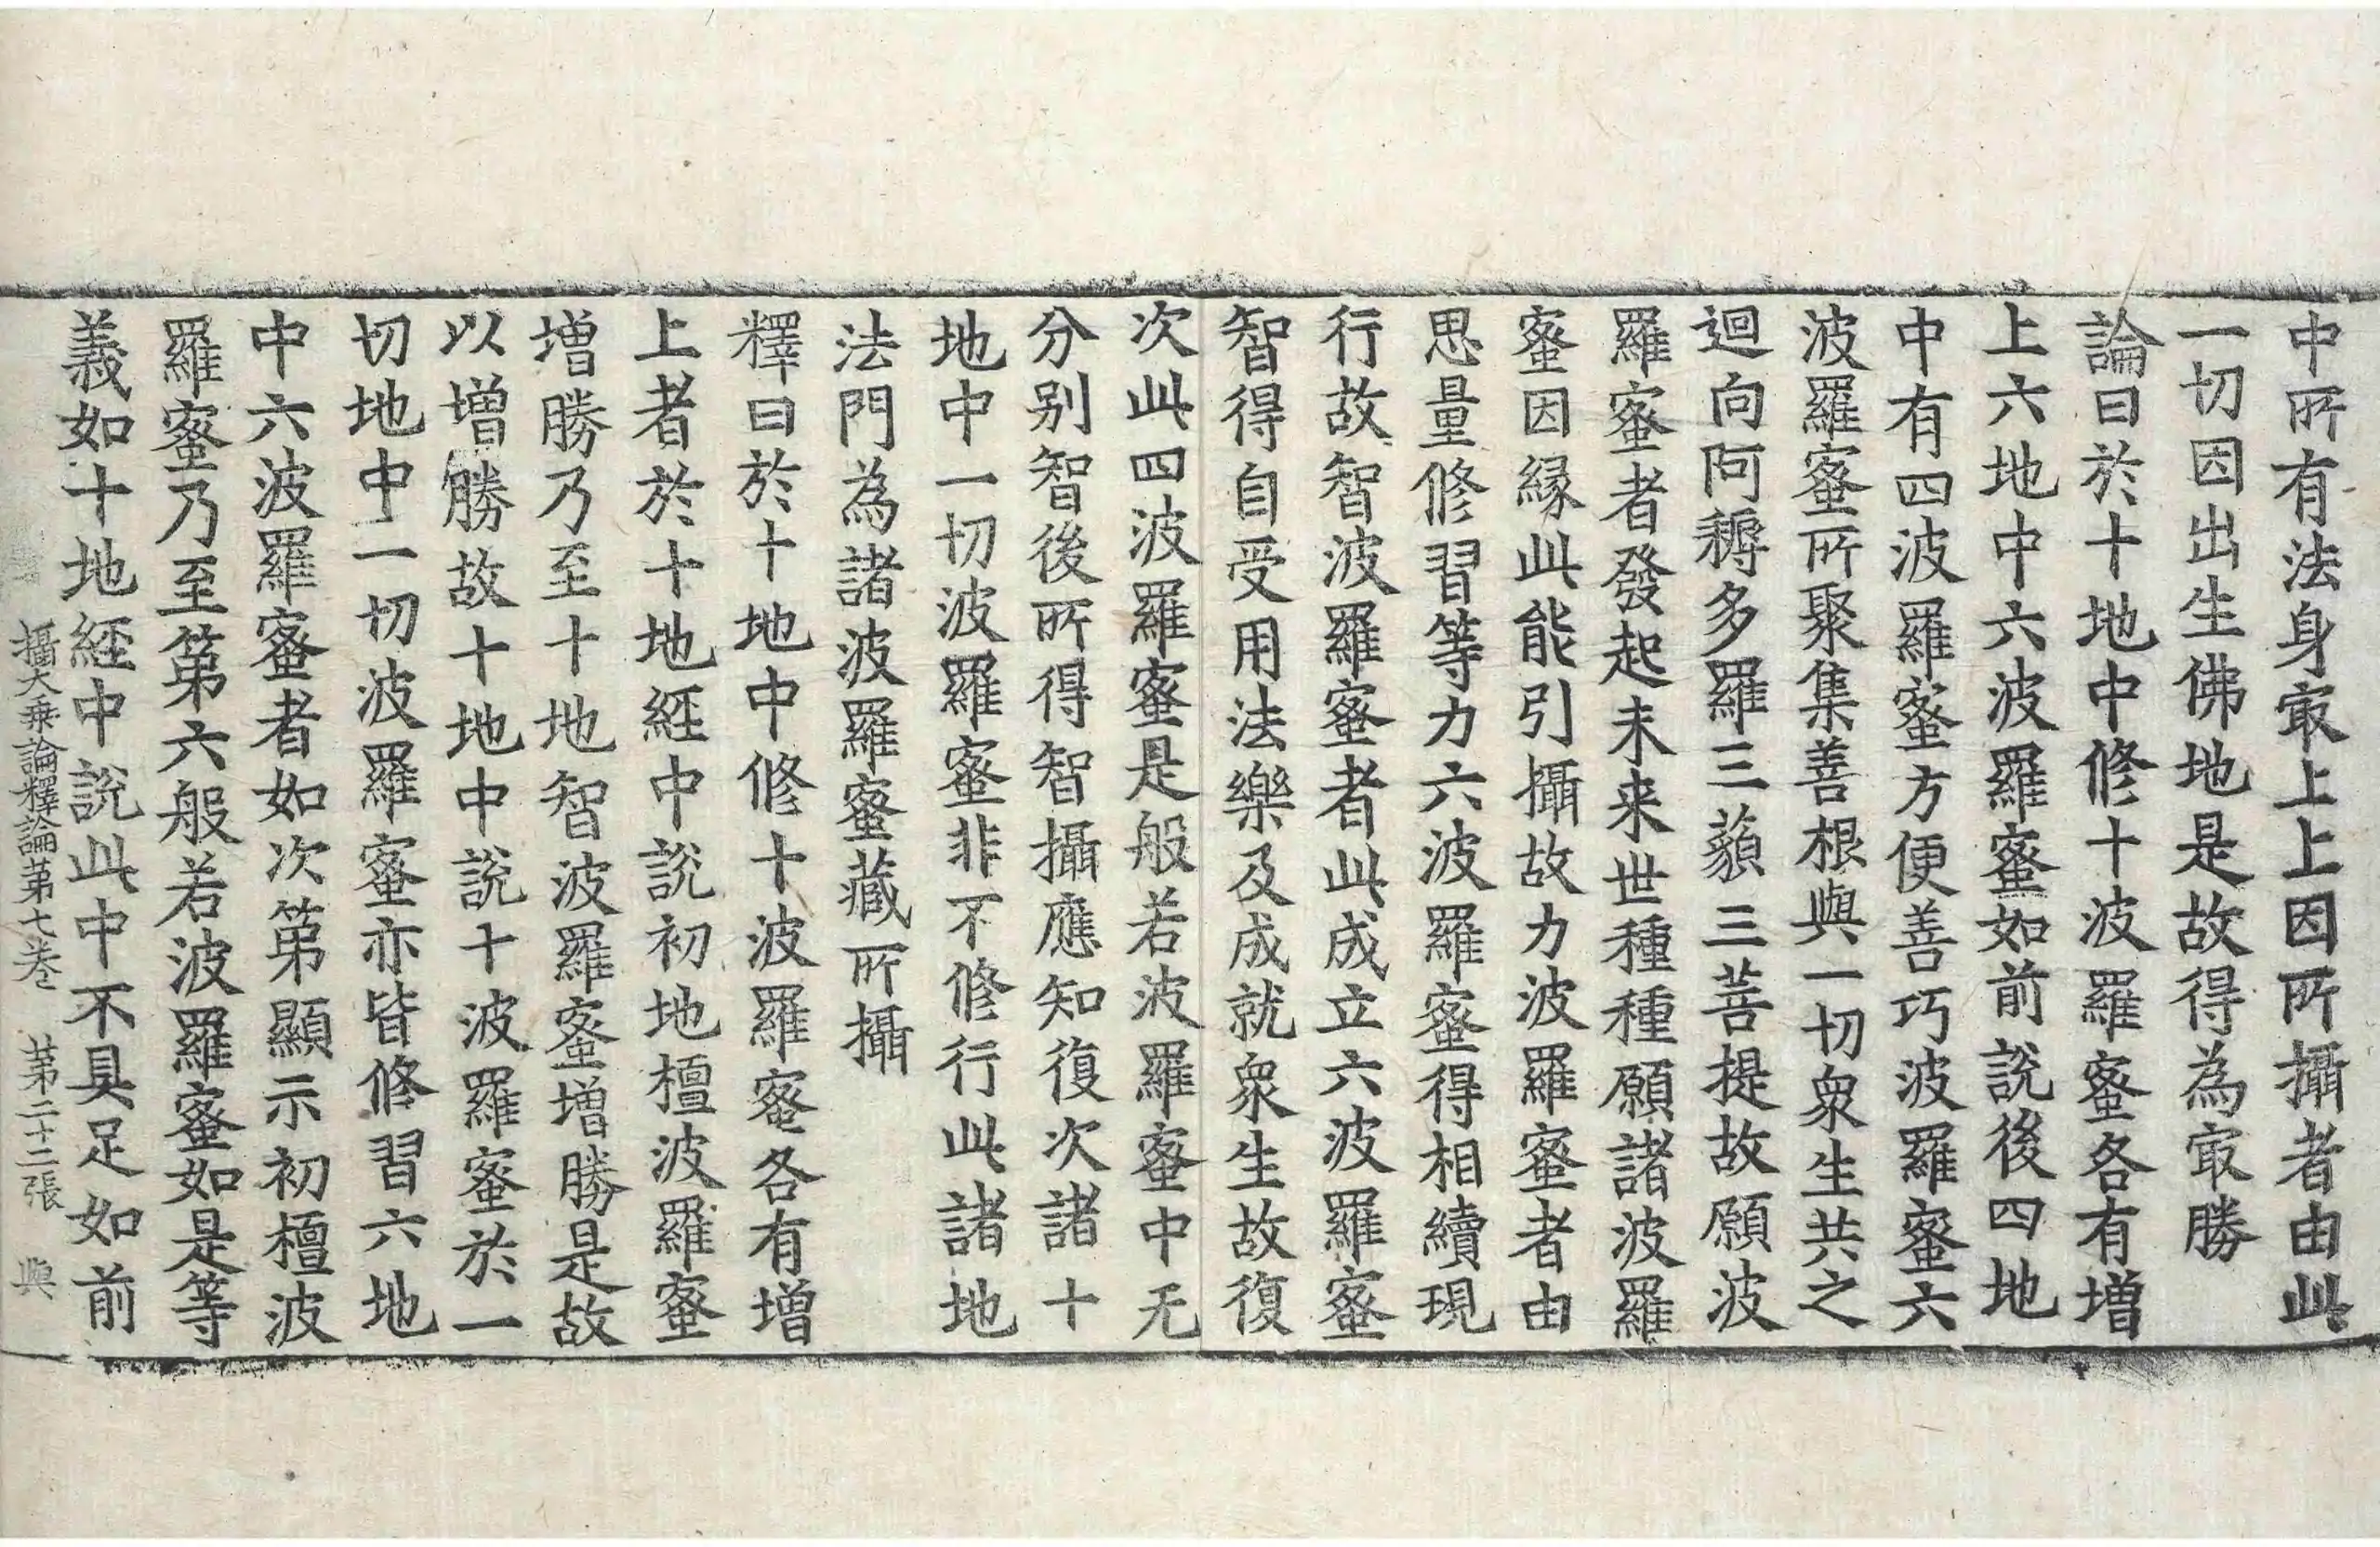 中所有法身㝡上上因所攝者由此
一切因出生佛地是故得為㝡勝
論曰於十地中修十波羅蜜各有增
上六地中六波羅蜜如前說後四地
中有四波羅蜜方便善巧波羅蜜六
波羅蜜所聚集善根與一切衆生共之
迴向阿耨多羅三藐三菩提故願波
羅蜜者發起未来世種種願諸波羅
蜜因緣此能引攝故力波羅蜜者由
思量修習等力六波羅蜜得相續現
行故智波羅蜜者此成立六波羅蜜
智得自受用法樂及成就衆生故復
次此四波羅蜜是般若波羅蜜中无
分别智後所得智攝應知復次諸十
地中一切波羅蜜非不修行此諸地
法門為諸波羅蜜藏所攝
釋曰於十地中修十波羅蜜各有增
上者於十地經中說初地檀波羅蜜
增勝乃至十地智波羅蜜增勝是故
以增勝故十地中說十波羅蜜於一
切地中一切波羅蜜亦皆修習六地
中六波羅蜜者如次第顯示初檀波
羅蜜乃至第六般若波羅蜜如是等
義如十地経中說此中不具足如前
攝大乘論釋論第七卷　第二十二張　與